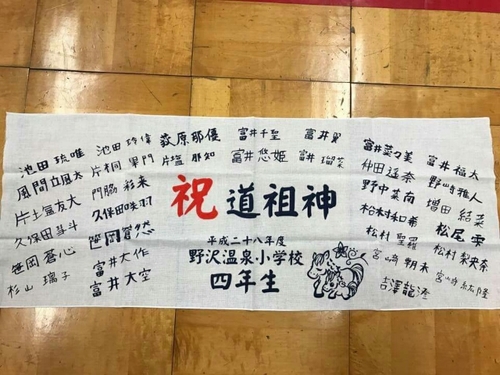 池田 琉唯
風間立風太
片塩友大
久保田基斗
笹岡 蒼心
杉山 璃子
池田 玲偉
片桐 里門
門脇 彩来
久保田咲羽
笹岡晋然
富井大作
富井大空
荻原耶優
片塩 那知
富井千聖
富井悠姫
富井 昊
富井 瑠菜
祝 道祖神
平成二十八年度
野沢温泉小学校
四年生
富井菜々美
仲田遥奈
野中菜南
松本和希
松村 聖羅
宮﨑 朔未
吉澤龍澄
富井福太
野﨑雅人
増田 結菜
松尾 雫
松村梨央奈
宮﨑紘隆